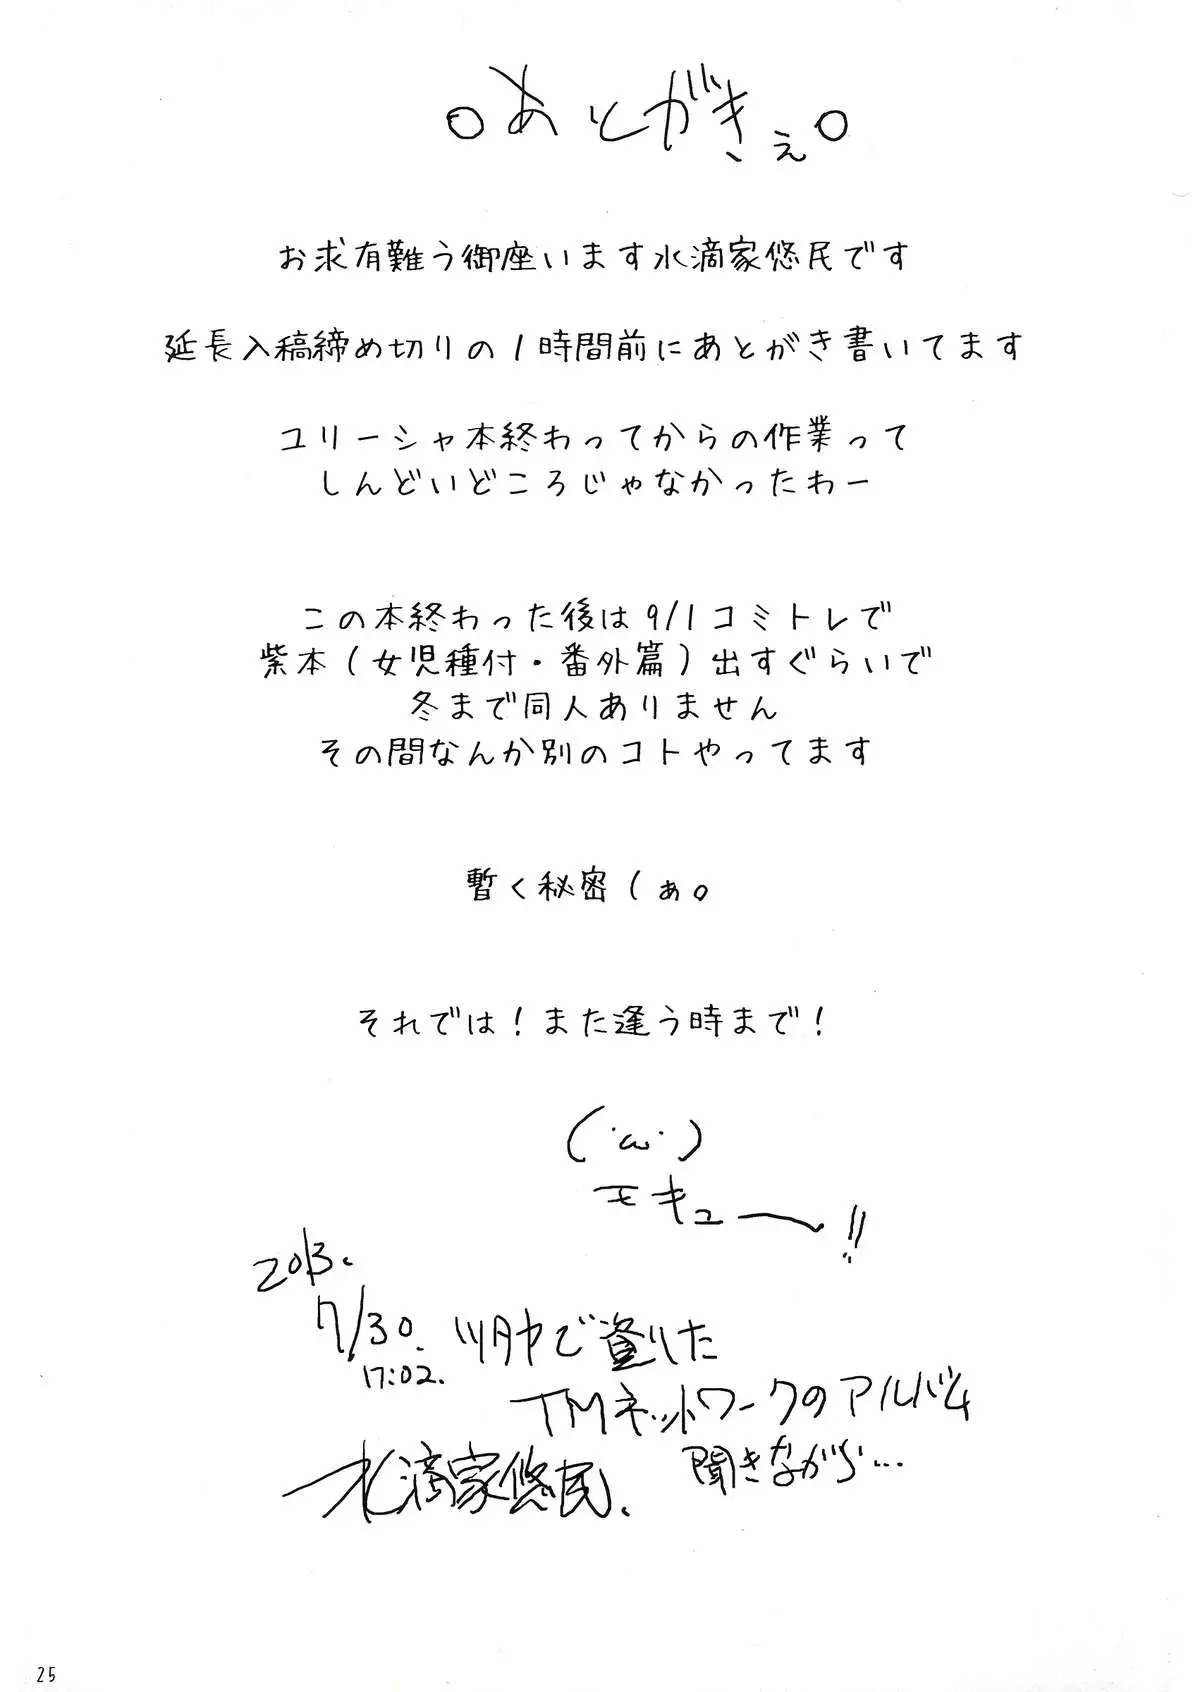 ○あとがきぇ○
お求有難う御座います水滴家悠民です
延長入稿締め切りの1時間前にあとがき書いてます
ユリーシャ本終わってからの作業って
しんどいどころじゃなかったわー
この本終わった後は9/1コミトレで
紫本(女児種付・番外篇)出すぐらいで
冬まで同人ありません
その間なんか別のコトやってます
暫く秘密(ぁ。
それでは!また逢う時まで!
(˙ω˙)
モキュー!!
2013.
7/30.
17:02.
ツタヤで借りた
TMネットワークのアルバム
聞きながら...
水滴家悠民.
25